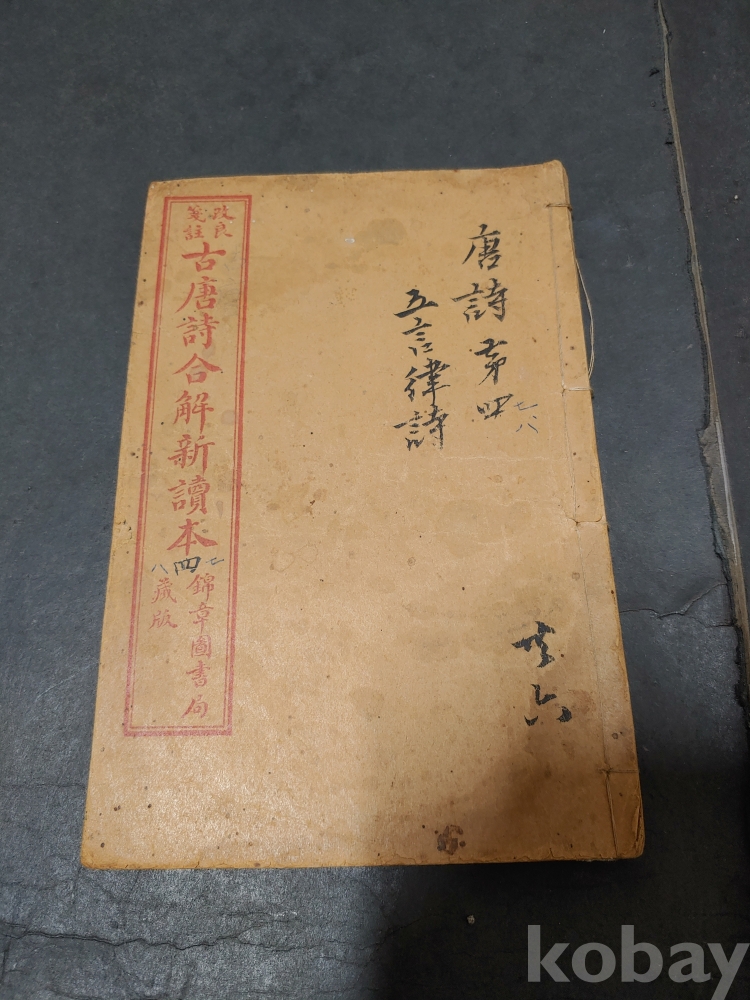 唐詩第四
七八
五言律詩
共六
改良
箋註
古唐詩合解新讀本
八四七
錦章圖書局
藏版
kobay